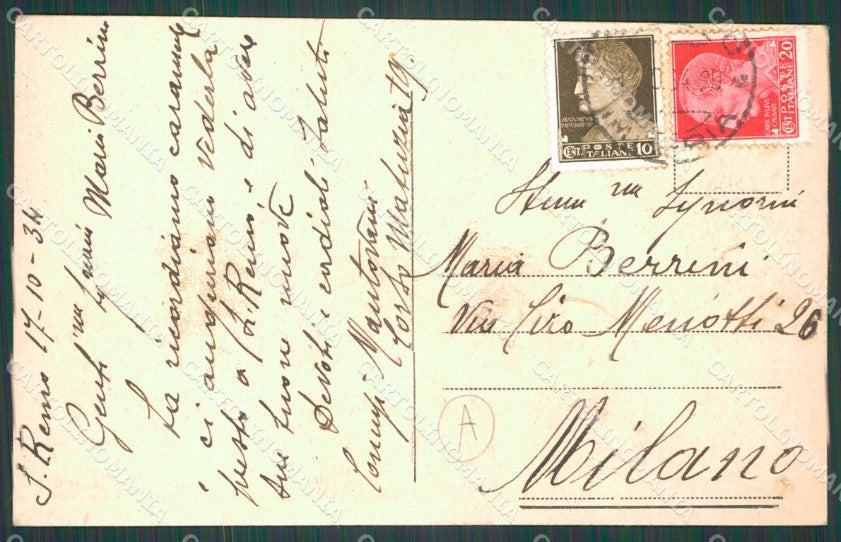 S. Remo 17-10-34
Gent. ma Maria Berrini
La ricordiamo caramen
ci auguriamo vederla
presto a S. Remo e di avere
sue buone nuove
Devoti e cordiali saluti
Mantovani
Corso
10
CENT. POSTE ITALIANE
20
CENT POSTE ITALIANE
Stim ma Signorina
Maria Berrini
Via Ciro Menotti 26
Milano
A
CARTOLINOMANIA